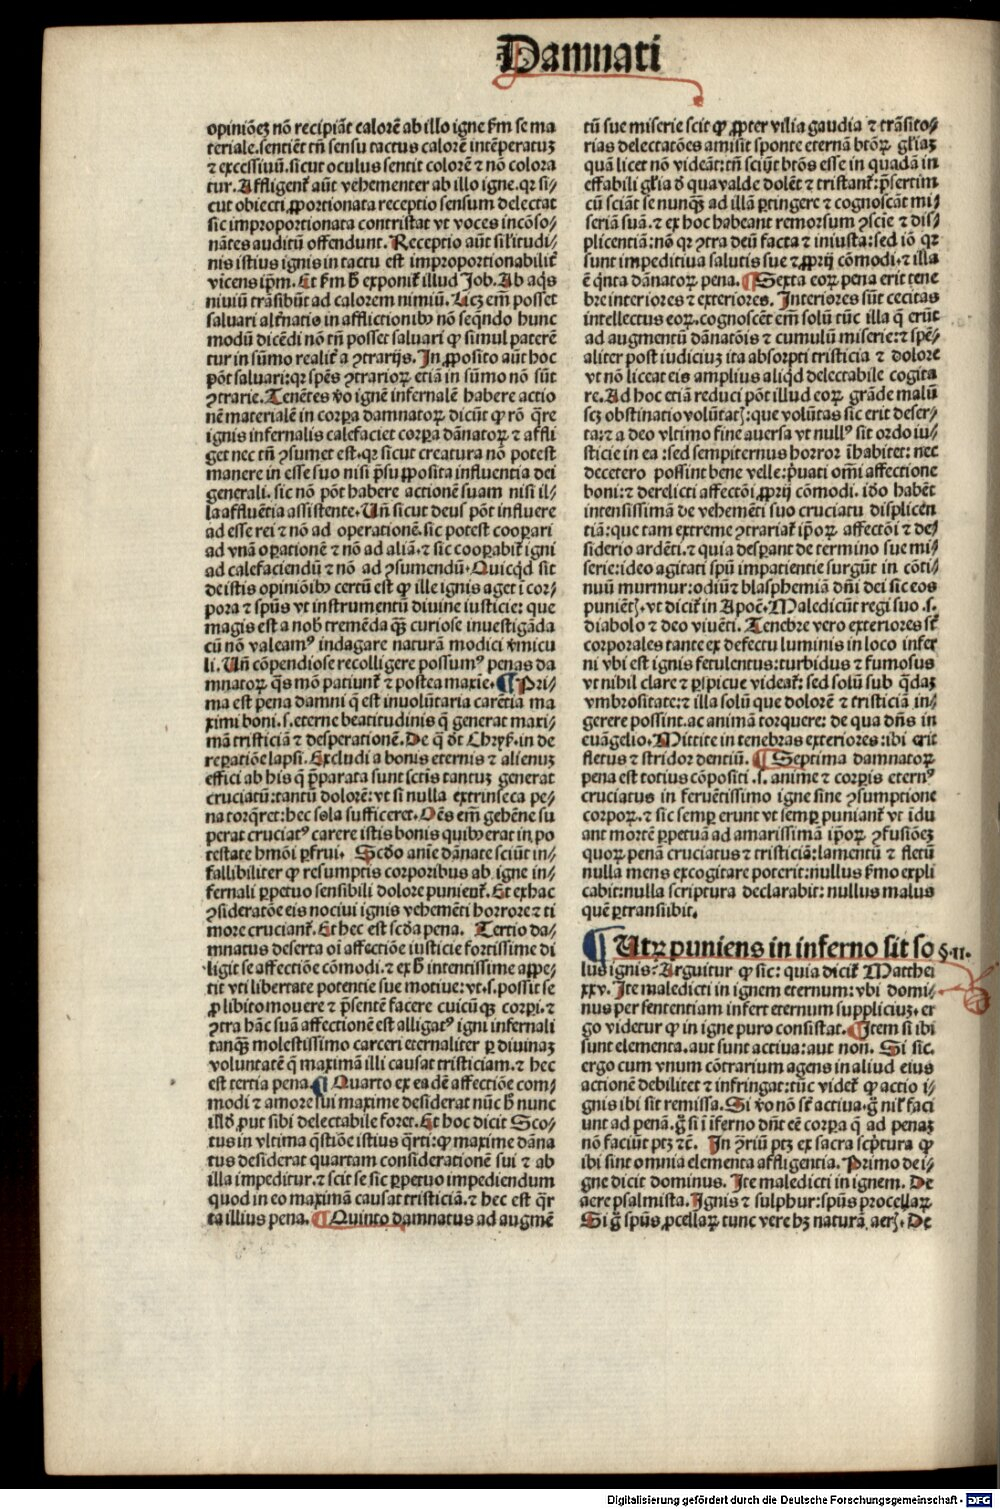 Damnati
opiniōeʒ nō recipiāt calorē ab illo igne ẜm se ma
teriale.sentiēt tn̄ sensu tactus calorē intēperatuʒ
⁊ excessiuū.sicut oculus sentit colorē ⁊ nō colora
tur.Affligent᷑ aūt vehementer ab illo igne.qꝛ si⸗
cut obiecti ꝓportionata receptio sensum delectat
sic improportionata contristat vt voces incōso⸗
nātes auditū offendunt. Receptio aūt sil'itudi⸗
nis istius ignis in tactu est improportionabilit᷑
vicens ip̄m. Et ẜm ꝧ exponit᷑ illud Job. Ab aq̄s
niuiū trāsibūt ad calorem nimiū. Utꝝ em̄ posset
saluari alt᷑natis in afflictionibꝰ nō seq̄ndo hunc
modū dicēdi nō tn̄ posset saluari ꝙ simul paterē
tur in sūmo realit᷑ a ꝯtrarijs. In ꝓposito aūt hoc
pōt saluari:qꝛ sp̄es ꝯtrarioꝝ etiā in sūmo nō sūt
ꝯtrarie. Tenētes v̄o ignē infernalē habere actio
nē materialē in corpa damnatoꝝ dicūt ꝙ rō q̄re
ignis infernalis calefaciet corpa dānatoꝝ ⁊ affli
get nec tn̄ ꝯsumet est.qꝛ sicut creatura nō potest
manere in esse suo nisi p̄suꝓposita influentia dei
generali. sic nō pōt habere actionē suam nisi il⸗
la affluētia assistente. Un̄ sicut deus pōt influere
ad esse rei ⁊ nō ad operationē.sic potest cooꝑari
ad vnā oꝑationē ⁊ nō ad aliā.⁊ sic cooꝑabit᷑ igni
ad calefaciendū ⁊ nō ad ꝯsumendū. Quicq̇d sit
de istis opiniōibꝰ certū est ꝙ ille ignis aget ī cor⸗
pora ⁊ sp̄us vt instrumentū diuine iusticie: que
magis est a nob̄ tremēda q̄ꝫ curiose inuestigāda
cū nō valeamꝰ indagare naturā modici v̄micu
li. Un̄ cōpendiose recolligere possumꝰ penas da
mnatoꝝ q̄s mō patiunt᷑ ⁊ postea maxīe. ¶ Pri⸗
ma est pena damni q̄ est inuolūtaria carētia ma
ximi boni.s.eterne beatitudinis q̄ generat maxi⸗
mā tristiciā ⁊ desperationē. De q̄ dt̄ Chrys̄. in de
reꝑatiōe lapsi. Excludi a bonis eternis ⁊ alienuʒ
effici ab his q̄ p̄parata sunt sctīs tantuʒ generat
cruciatū:tantū dolorē:vt si nulla extrinseca pe⸗
na torq̄ret:hec sola sufficeret. Oēs em̄ gehēne su
perat cruciatꝰ carere istis bonis quibꝰ erat in po
testate hmōi ꝑfrui. Scd̄o anīe dānate sciūt in⸗
fallibiliter ꝙ resumptis corporibus ab igne in⸗
fernali ꝑpetuo sensibili dolore punient᷑. Et ex hac
ꝯsideratōe eis nociui ignis vehemēti horrore ⁊ ti
more cruciant᷑. Et hec est scd̄a pena. Tertio da⸗
mnatus deserta oī affectiōe iusticie fortissime di
ligit se affectiōe cōmodi.⁊ ex ꝧ intentissime appe⸗
tit vti libertate potentie sue motiue:vt.s.possit se
ꝓ libito mouere ⁊ p̄sentē facere cuicūqꝫ corpi.⁊
ꝯtra hāc suā affectionē est alligatꝰ igni infernali
tanq̄ꝫ molestissimo carceri eternaliter ꝑ diuinaʒ
voluntatē q̄ maximā illi causat tristiciam.⁊ hec
est tertia pena. ¶ Quarto ex eadē affectiōe com⸗
modi ⁊ amore sui maxime desiderat nūc ꝧ nunc
illd̄ ꝓut sibi delectabile foret. Et hoc dicit Sco⸗
tus in vltima q̄stiōe istius q̄rti:ꝙ maxime dāna
tus desiderat quartam considerationē sui ⁊ ab
illa impeditur.⁊ scit se sic ꝑpetuo impediendum
quod in eo maximā causat tristiciā.⁊ hec est q̄r
ta illius pena. ¶ Quinto damnatus ad augmē
tū sue miserie scit ꝙ ꝓpter vilia gaudia ⁊ trāsito⸗
rias delectatōes amisit sponte eternā btōꝝ gl'iaʒ
quā licet nō videāt:tn̄ sciūt btōs esse in quadā in
effabili gl'ia d̄ qua valde dolēt ⁊ tristant᷑:p̄sertim
cū sciāt se nunq̄ꝫ ad illā ꝑtingere ⁊ cognoscāt mi⸗
seriā suā.⁊ ex hoc habeant remorsum ꝯscīe ⁊ dis⸗
plicentiā:nō qꝛ ꝯtra deū facta ⁊ iniusta:sed iō qꝛ
sunt impeditiua salutis sue ⁊ ꝓprij cōmodi.⁊ illa
ē q̄nta dānatoꝝ pena. ¶ Sexta eoꝝ pena erit tene
bre interiores ⁊ exteriores. Interiores sūt cecitas
intellectus eoꝝ.cognoscēt em̄ solū tūc illa q̄ erūt
ad augmentū dānatōis ⁊ cumulū miserie:⁊ spē⸗
aliter post iudiciuʒ ita absorpti tristicia ⁊ dolore
vt nō liceat eis amplius aliq̇d delectabile cogita
re. Ad hoc etiā reduci pōt illud eoꝝ grāde malū
scʒ obstinatio volūtatꝭ:que volūtas sic erit deser⸗
ta:⁊ a deo vltimo fine auersa vt nullꝰ sit ordo iu⸗
sticie in ea:sed sempiternus horror īhabitet: nec
decetero possint bene velle:p̄uati omī affectione
boni:⁊ derelicti affectōi ꝓprij cōmodi. id̄o habēt
intensissimā de vehemēti suo cruciatu displicen
tiā:que tam extreme ꝯtrariat᷑ ip̄oꝝ affectōi ⁊ de⸗
siderio ardēti.⁊ quia desꝑant de termino sue mi⸗
serie:ideo agitati spū impatientie surgūt in cōti⸗
nuū murmur:odiū ⁊ blasphemiā dn̄i dei sic eos
puniētꝭ.vt dicit᷑ in Apoc̄. Maledicūt regi suo .s.
diabolo ⁊ deo viuēti. Tenebre vero exteriores st̄
corporales tante ex defectu luminis in loco infer
ni vbi est ignis fetulentus:turbidus ⁊ fumosus
vt nihil clare ⁊ ꝑspicue videat᷑: sed solū sub q̄daʒ
vmbrositate:⁊ illa solū que dolorē ⁊ tristiciā in⸗
gerere possint.ac animā torquere: de qua dn̄s in
euāgelio. Mittite in tenebras exteriores:ibi erit
fletus ⁊ stridor dentiū. ¶ Septima damnatoꝝ
pena est totius cōpositi .s. anime ⁊ corpis eternꝰ
cruciatus in feruētissimo igne sine ꝯsumptione
corpoꝝ.⁊ sic semp̄ erunt vt semp̄ puniant᷑ vt īdu
ant mortē ꝑpetuā ad amarissimā ip̄oꝝ ꝯfusiōeʒ
quoꝝ penā cruciatus ⁊ tristiciā:lamentū ⁊ fletū
nulla mens excogitare poterit:nullus ẜmo expli
cabit:nulla scriptura declarabit: nullus malus
quē ꝑtransibit.
¶ Utꝝ puniens in inferno sit so §.II.
lus ignis? Arguitur ꝙ sic: quia dicit᷑ Matthei
xxv. Ite maledicti in ignem eternum:vbi domi⸗
nus per sententiam infert eternum suppliciuʒ.er
go videtur ꝙ in igne puro consistat. ¶ Item si ibi
sunt elementa.aut sunt actiua:aut non. Si sic.
ergo cum vnum cōtrarium agens in aliud eius
actionē debilitet ⁊ infringat:tūc videt᷑ ꝙ actio i⸗
gnis ibi sit remissa. Si v̄o nō st̄ actiua.g̊ nil' faci
unt ad penā.g̊ si ī īferno dn̄t eē corpa q̄ ad penaʒ
nō faciūt ptʒ ⁊c̄. In ꝯ̄riū ptʒ ex sacra sc̄ptura ꝙ
ibi sint omnia elementa affligentia. Primo de i⸗
gne dicit dominus. Ite maledicti in ignem. De
aere psalmista. Ignis ⁊ sulphur:spūs procellaꝝ
Si g̊ spūs ꝓcellaꝝ tunc vere hʒ naturā aerꝭ. De
Digitalisierung gefördert durch die Deutsche Forschungsgemeinschaft - DFG